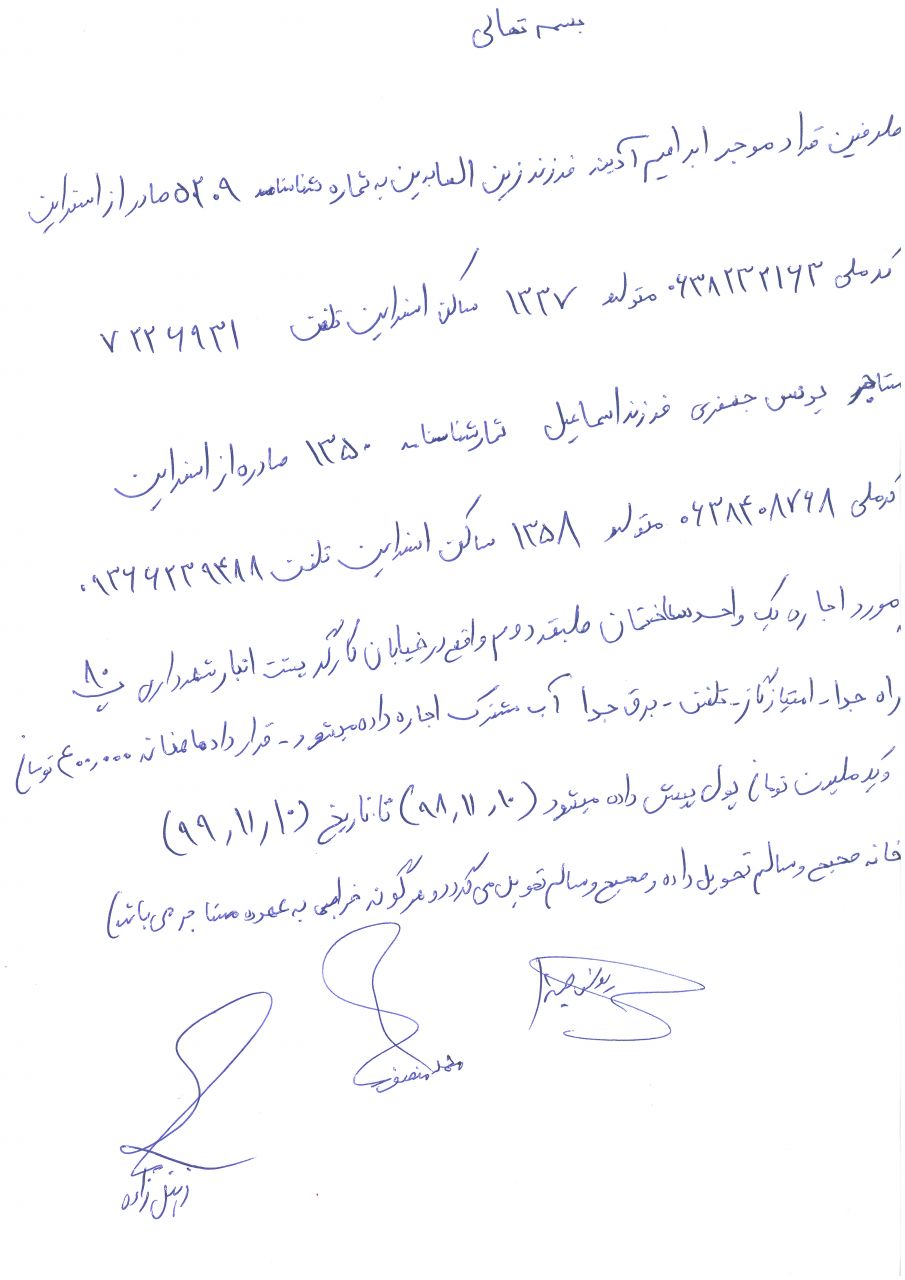 بسمه تعالی
طرفین قرارداد موجر ابراهیم آدینه فرزند زین العابدین به شماره شناسنامه ۵۲۰۹ صادر از اسفراین
کد ملی ۰۶۳۸۲۳۲۱۶۳ متولد ۱۳۳۷ ساکن اسفراین تلفن ۷۲۲۶۹۳۱
مستاجر یونس جعفری فرزند اسماعیل شمارشناسنامه ۱۳۵۰ صادره از اسفراین
کدملی ۰۶۳۸۴۰۸۷۶۸ متولد ۱۳۵۸ ساکن اسفراین تلفن ۰۹۳۶۶۲۳۹۴۸۸
مورد اجاره یک واحد ساختمان طبقه دوم واقع در خیابان کارگر پشت انبار شهرداری پ ۸۰
راه جدا - امتیاز گاز - تلفن - برق جدا آب مشترک اجاره داده میشود - قرارداد ماهانه ۴۰۰,۰۰۰ تومان
و یک ملیون تومان پول پیش داده میشود (۹۸٫۱۱٫۱۰) تا تاریخ (۹۹٫۱۱٫۱۰)
خانه صحیح و سالم تحویل داده و صحیح و سالم تحویل می گردد و هر گونه خرابی به عهده مستاجر می باشد)
یونس
محمد